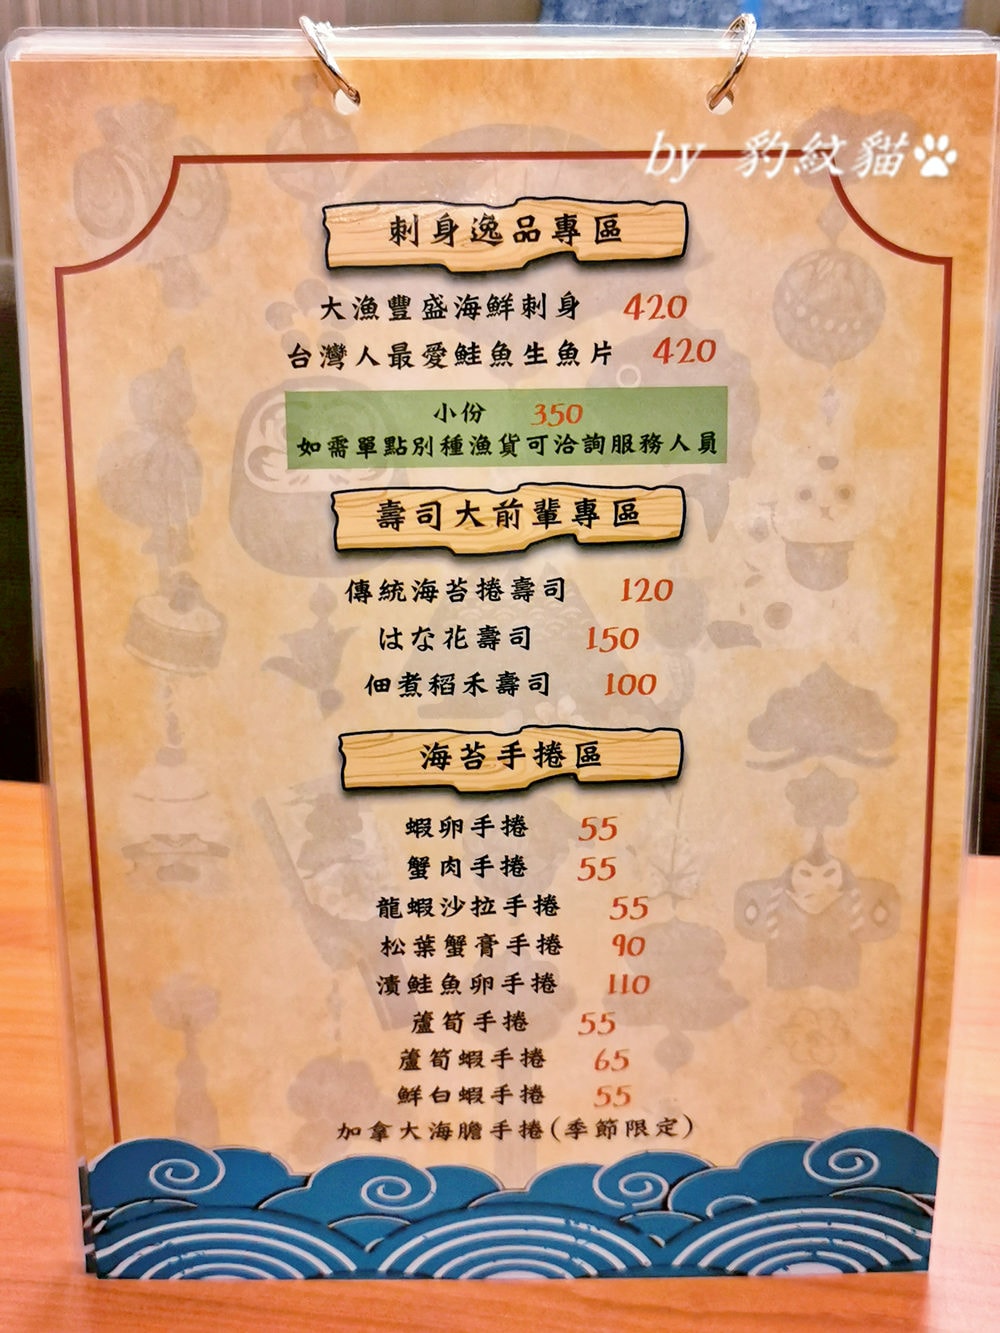 by 豹紋貓
刺身逸品專區
大漁豐盛海鮮刺身 420
台灣人最愛鮭魚生魚片 420
小份 350
如需單點別種漁貨可洽詢服務人員
壽司大前輩專區
傳統海苔捲壽司 120
はな花壽司 150
佃煮稻禾壽司 100
海苔手捲區
蝦卵手捲 55
蟹肉手捲 55
龍蝦沙拉手捲 55
松葉蟹膏手捲 90
漬鮭魚卵手捲 110
蘆筍手捲 55
蘆筍蝦手捲 65
鮮白蝦手捲 55
加拿大海膽手捲(季節限定)